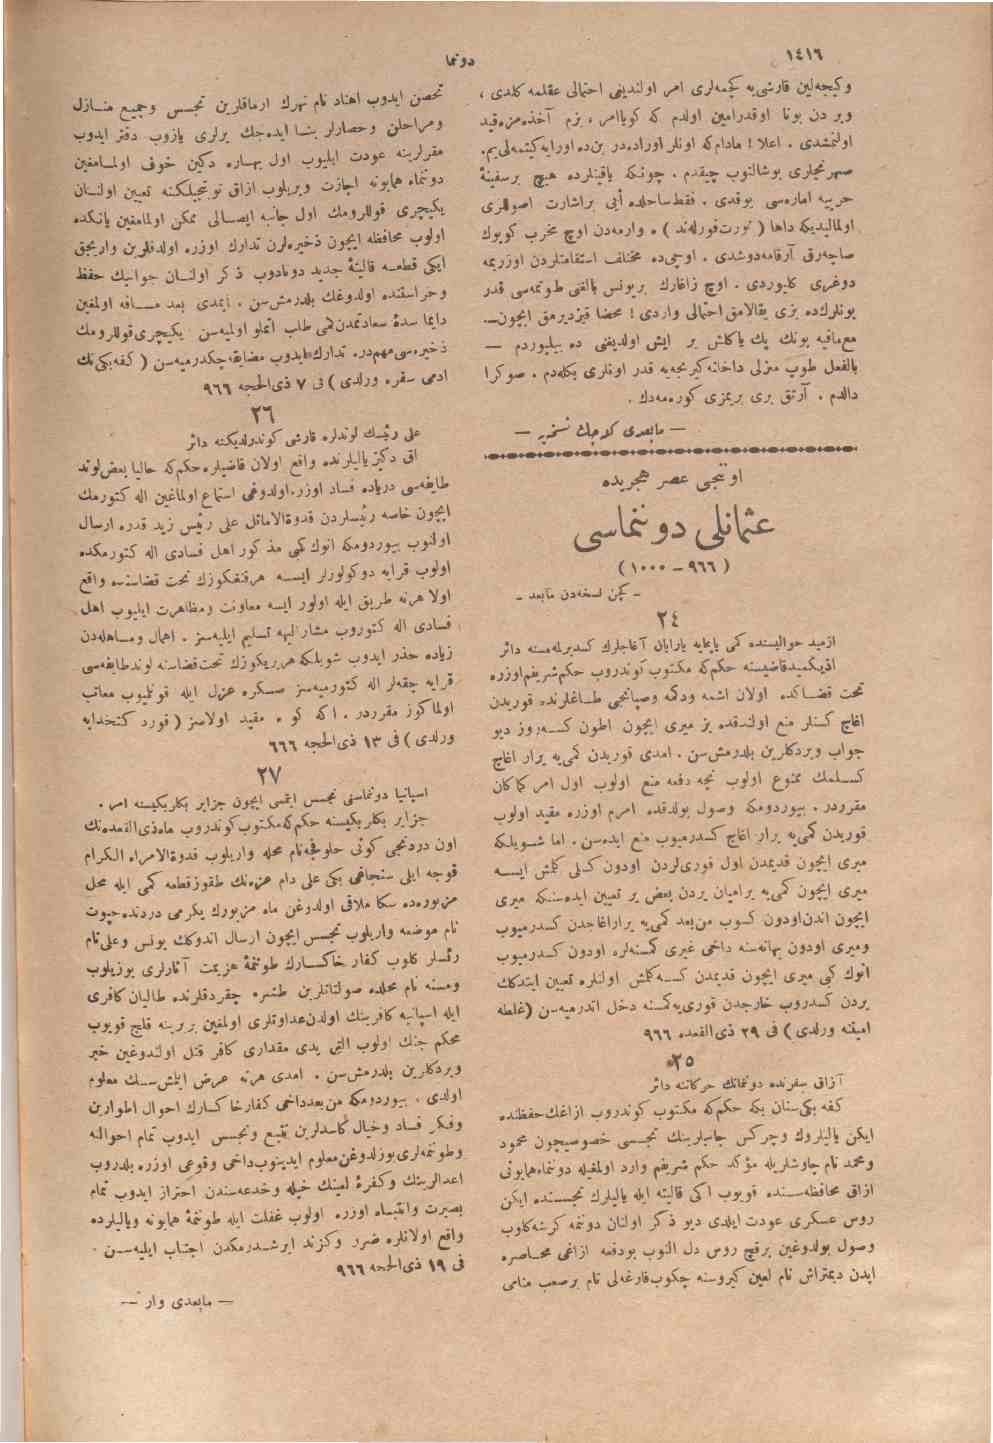 ١٤١٦
دوننما
وكیجه‌لین قارشی‌یه كچمه‌لری امر اولندیغی احتمالی عقلمه كلدی ،
ویردن بوكا اوقدر امین اولدم كه كویا امر ، بزم آخذه‌مزه قید
اولنمشدی . اعلا ! مادام كه اونلر اوراده‌در بن ده اورایه كیتمه‌لی‌یم.
صهرنجلری بوشالتوب چیقدم . چونكه یاقینلرده هیچ برسفینهٔ
حربیه اماره‌سی یوقدی . فقط ساحلده
اولمالیدیكه داها ( نورت فورله‌ند ) ه وارمه‌دن اوچ مخرب كوپوك
صاچه‌رق آرقامه دوشدی . اوچی‌ده مختلف استقامتلردن اوزریمه
دوغری كلیوردی . اوچ زاغارك بریونس بالغی طوتمه‌سی قدر
بونلرك‌ده بزی یقالامق احتمالی واردی ! محضا قیزدیرمق ایچون
مع‌مافیه بونك پك یاكلش بر ایش اولدیغنی ده بیلیوردم —
بالفعل طوپ منزلی داخلنه كیرنجه‌یه قدر اونلری بكله‌دم . صوكرا
دالدم . آرتق بری بریمزی كوره‌مه‌دك .
— مابعدی كله‌جك نسخه‌ده —
اوننجی عصر هجریده
عثمانلی دوننماسی
( ٩٦٦ – ١٠٠٠ )
- كچن نسخه‌دن مابعد -
٢٤
ازمید حوالیسنده كمی یاپمایه یارایان آغاجلرك كسدیرلمه‌مسنه دائر
اذنیكمید قاضیسنه حكم كه مكتوب كوندروب حكم شریفم اوزره
تحت قضاكده اولان اشمه ودكمه وصپانجی طاغلرنده قوریدن
اغاج كسنلر منع اولندقده بز میری ایچون اطون كسه‌روز دیو
جواب ویردكلرین بلدرمش‌سن . امدی قوریدن كمی‌یه یرار اغاج
كسلمك ممنوع اولوب نیجه دفعه منع اولوب اول امر كماكان
مقرردر . بیوردومكه وصول بولدقده امرم اوزره مقید اولوب
قوریدن كمی‌یه یرار اغاج كسدرمیوب منع ایده‌سن . اما شویلكه
میری ایچون قدیمدن اول قوری‌لردن اودون كسلی كلمش ایسه
میری ایچون كمی‌یه یرامیان یردن بعض یر تعیین ایده‌سنكه میری
ایچون اندن اودون كسوب من‌بعد كمی‌یه یرار اغاجدن كسدرمیوب
ومیری اودون بهانه‌سنه داخی غیری كمسنه‌لره اودون كسدرمیوب
انوك كبی میری ایچون قدیمدن كسه كلمش اولنلره تعیین ایتدكك
یردن كسدروب خارجدن قوری‌یه كمسنه دخل اتدرمیه‌سن (غلطه
امیننه ورلدی ) فی ٢٩ ذی‌القعده ٩٦٦
٢٥
آزاق سفرنده دونمانك حركاتنه دائر
كفه بكی سنان بكه حكم كه مكتوب كوندروب ازاغك حفظنده
ایكن یالیلروك وچركس جانبلرینك تجسسی خصوصیچون محمود
ومحمد نام چاوشلریله مؤكد حكم شریفم وارد اولمغیله دوننماء همایونی
ازاق محافظه‌سنده قویوب اكی قالیته ایله یالیلرك تجسسنده ایكن
روس عسكری عودت ایلدی دیو ذكر اولنان دوننمه كرشه كلوب
وصول بولدوغین برقچ روس دل النوب بودفعه ازاغی محاصره
ایدن دیمتراش نام لعین كیروسنه چكوب قارغه‌لی نام برصعب مناسی
تحصن ایدوب اهناد نام نهرك ارماقلرین تجسس وجمیع منازل
ومراحلن وحصارلر بنا ایده‌جك یرلری یازوب دفتر ایدوب
مقرلرینه عودت ایلیوب اول بهاره دكین خوف اولمامغین
دوننماء همایونه اجازت ویریلوب ازاق نوبتجیلكنه تعیین اولنان
یكیچری قوللرومك اول جانبه ایصالی ممكن اولمامغین یانكده
اولوب محافظه ایچون ذخیره‌لرن تدارك اوزره اولدقلرین واریجق
ایكی قطعه قالیتهٔ جدید دونادوب ذكر اولنان جوانبك حفظ
وحراستنده اولدوغك بلدرمش‌سن . ایمدی بعد مسافه اولمغین
دایما سدهٔ سعادتمدن كمی طلب اتملو اولمیه‌سن یكیچری قوللرومك
ذخیره‌سی مهم‌در، تدارك ایدوب مضایقه چكدرمیه‌سن ( كفه بكی‌نك
ادمی سفره ورلدی ) فی ٧ ذی‌الحجه ٩٦٦
٢٦
علی رئیسك لوندلره قارشی كوندرلدیكنه دائر
اق دكیز یالیلرنده واقع اولان قاضیلره حكم كه حالیا بعض لوند
طایفه‌سی دریاده فساد اوزره اولدوغی استماع اولماغین اله كتورمك
ایچون خاصه رئیسلردن قدوةالاماثل علی رئیس زید قدره ارسال
اولنوب بیوردومكه انوك كمی مذكور اهل فسادی اله كتورمكده
اولوب قرایه دوكولورلر ایسه هرقنغكوزك تحت قضاسنه واقع
اولا هرنه طریق ایله اولور ایسه معاونت ومظاهرت ایلیوب اهل
فسادی اله كتوروب مشارالیهه تسلیم ایلیه‌سز . اهمال ومساهله‌دن
زیاده حذر ایدوب شویلكه هربریكوزك تحت قضاسنه لوند طایفه‌سی
قرایه چقه‌لر اله كتورمیه‌سز صكره عزل ایله قونلمیوب معاتب
اولماكوز مقرردر . اكا كوره مقید اولاسز ( قورد كتخدایه
ورلدی ) فی ١٣ ذی‌الحجه ٦٦٦
٢٧
اسپانیا دونماسنی تجسس ایتمسی ایچون جزایر بكلربكیسنه امر .
جزایر بكلربكیسنه حكم كه مكتوب كوندروب ماه ذی‌القعده‌نك
اون دردنجی كونی حلومنجه نام محله واریلوب قدوةالامراء الكرام
قوجه ایلی سنجاغی بكی علی دام عزه‌نك طقوز قطعه كمی ایله محل
مزبوره‌ده سكا ملاقی اولدرغن ماه مزبورك یكرمی دردنده جپوت
نام موضعه واریلوب تجسس ایچون ارسال اندوكك یونس وعلی نام
رئسلر كلوب كفار خاكسارك طوننمهٔ هزیمت آثارلری بوزیلوب
ومسنه نام محلده صولتانلرین طشره چقردقلرنده طالیان كافری
ایله اسپانیه كافرینك اولدن عداوتلری اولمغین بربرینه قلیج قویوب
محكم جنك اولوب التی یدی مقداری كافر قتل اولندوغین خبر
ویردكلرین بلدرمش‌سن . امدی هرنه عرض ایلمش‌سك معلوم
اولدی . بیوردومكه من‌بعد داخی كفار خاكسارك احوال اطوارین
وفكر فساد وخیال كاسدلرین تتبع وتجسس ایدوب تمام احوالنه
وطوننمه‌لری بوزلدوغن معلوم ایدینوب داخی وقوعی اوزره بلدروب
اعدالریتك وكفرهٔ لعینك حیله وخدعه‌سندن احتراز ایدوب تمام
بصیرت وانتباه اوزره اولوب غفلت ایله طوننمهٔ همایونه ویالیلرده
واقع اولانلره ضرر وكزند ایرشدرمكدن اجتناب ایلیه‌سن .
فی ١٩ ذی‌الحجه ٩٦٦
— مابعدی وار —